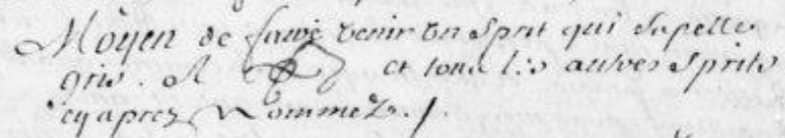 Môyen de faire venir un Sprit qui sapelle
gris. et tous les autres Sprits
cy aprez Nommez./.